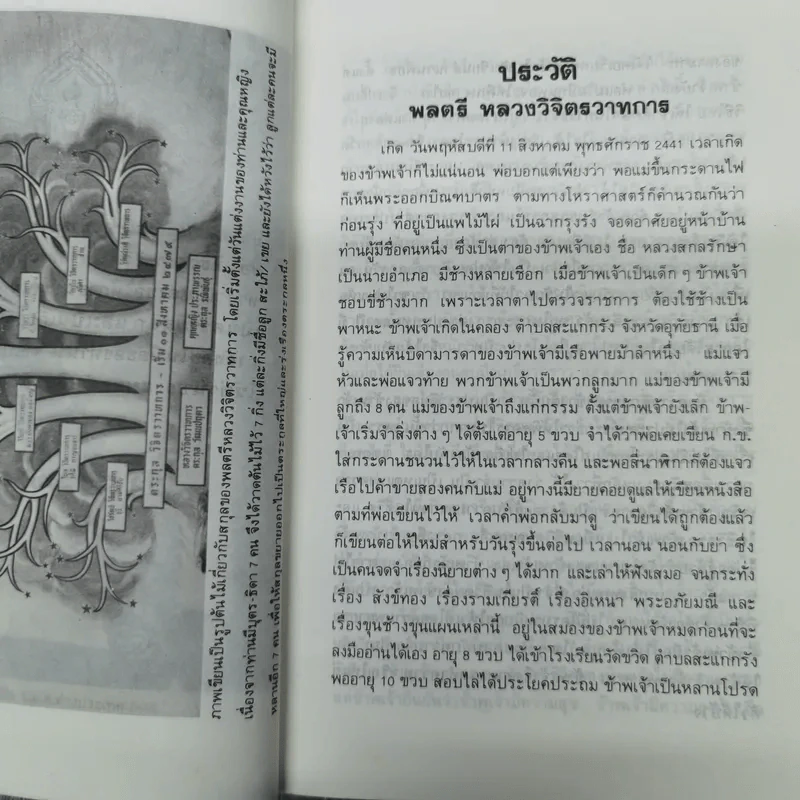 ตระกูล วิจิตรวาทการ - เริ่ม ๑๑ สิงหาคม ๒๔๗๕
ภาพเขียนเป็นรูปต้นไม้เกี่ยวกับสกุลของพลตรีหลวงวิจิตรวาทการ โดยเริ่มตั้งแต่วันแต่งงานของท่านและคุณหญิง
เนื่องจากท่านมีบุตร-ธิดา 7 คน จึงได้วาดต้นไม้ไว้ 7 กิ่ง แต่ละกิ่งมีชื่อลูก สะใภ้/เขย และยังได้หวังไว้ว่า ลูกแต่ละคนจะมี
หลานอีก 7 คน เพื่อให้สกุลขยายออกไปเป็นตระกูลที่ใหญ่และรุ่งเรืองตระกูลหนึ่ง
ประวัติ
พลตรี หลวงวิจิตรวาทการ
เกิด วันพฤหัสบดีที่ 11 สิงหาคม พุทธศักราช 2441 เวลาเกิด
ของข้าพเจ้าก็ไม่แน่นอน พ่อบอกแต่เพียงว่า พอแม่ขึ้นกระดานไฟ
ก็เห็นพระออกบิณฑบาตร ตามทางโหราศาสตร์ก็คำนวณกันว่า
ก่อนรุ่ง ที่อยู่เป็นแพไม้ไผ่ เป็นฉากรุงรัง จอดอาศัยอยู่หน้าบ้าน
ท่านผู้มีชื่อคนหนึ่ง ซึ่งเป็นตาของข้าพเจ้าเอง ชื่อ หลวงสกลรักษา
เป็นนายอำเภอ มีช้างหลายเชือก เมื่อข้าพเจ้าเป็นเด็ก ๆ ข้าพเจ้า
ชอบขี่ช้างมาก เพราะเวลาตาไปตรวจราชการ ต้องใช้ช้างเป็น
พาหนะ ข้าพเจ้าเกิดในคลอง ตำบลสะแกกรัง จังหวัดอุทัยธานี เมื่อ
รู้ความเห็นบิดามารดาของข้าพเจ้ามีเรือพายม้าลำหนึ่ง แม่แจว
หัวและพ่อแจวท้าย พวกข้าพเจ้าเป็นพวกลูกมาก แม่ของข้าพเจ้ามี
ลูกถึง 8 คน แม่ของข้าพเจ้าถึงแก่กรรม ตั้งแต่ข้าพเจ้ายังเล็ก ข้าพ-
เจ้าเริ่มจำสิ่งต่าง ๆ ได้ตั้งแต่อายุ 5 ขวบ จำได้ว่าพ่อเคยเขียน ก.ข.
ใส่กระดานชนวนไว้ให้ในเวลากลางคืน และพอสี่นาฬิกาก็ต้องแจว
เรือไปค้าขายสองคนกับแม่ อยู่ทางนี้มียายคอยดูแลให้เขียนหนังสือ
ตามที่พ่อเขียนไว้ให้ เวลาค่ำพ่อกลับมาดู ว่าเขียนได้ถูกต้องแล้ว
ก็เขียนต่อให้ใหม่สำหรับวันรุ่งขึ้นต่อไป เวลานอน นอนกับย่า ซึ่ง
เป็นคนจดจำเรื่องนิยายต่าง ๆ ได้มาก และเล่าให้ฟังเสมอ จนกระทั่ง
เรื่อง สังข์ทอง เรื่องรามเกียรติ์ เรื่องอิเหนา พระอภัยมณี และ
เรื่องขุนช้างขุนแผนเหล่านี้ อยู่ในสมองของข้าพเจ้าหมดก่อนที่จะ
ลงมืออ่านได้เอง อายุ 8 ขวบ ได้เข้าโรงเรียนวัดขวิด ตำบลสะแกกรัง
พออายุ 10 ขวบ สอบไล่ได้ประโยคประถม ข้าพเจ้าเป็นหลานโปรด